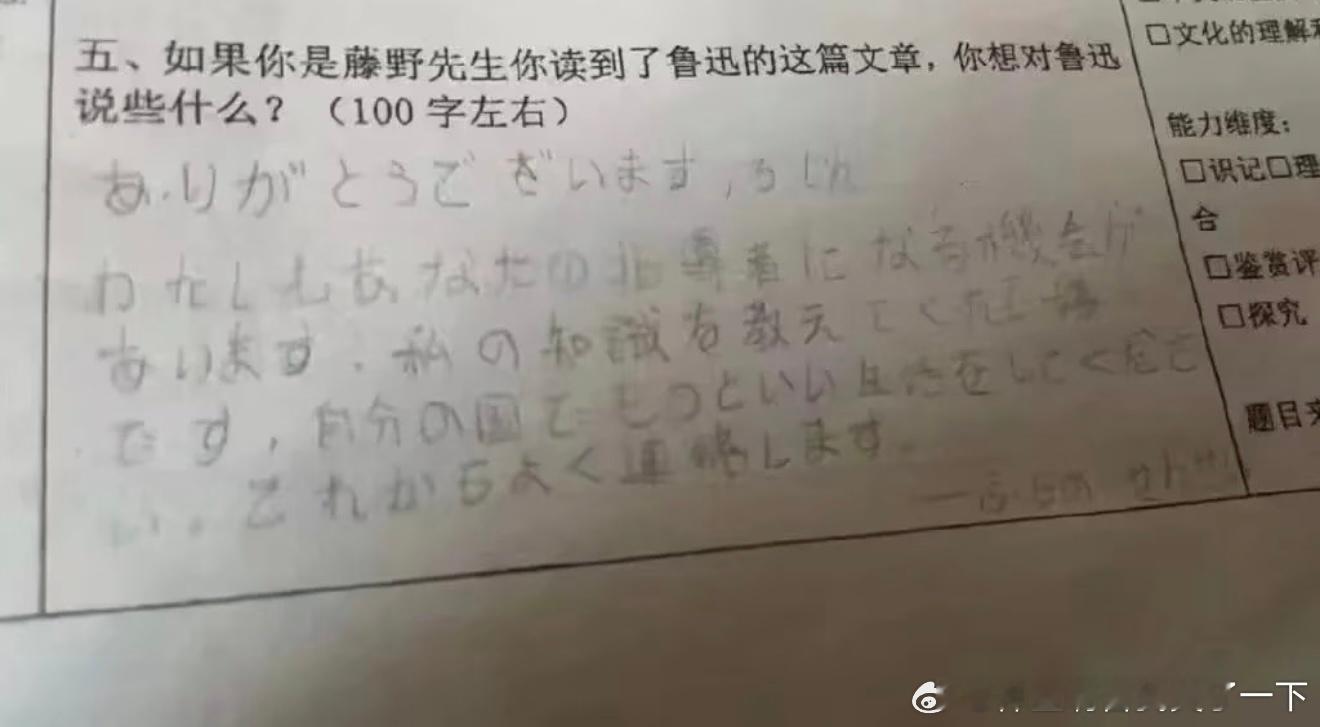 五、如果你是藤野先生你读到了鲁迅的这篇文章，你想对鲁迅
说些什么？（100 字左右）
ありがとうございます，ろじん
わたしもあなたの指導者になる機会が
あります．私の知識を教えてく
です，自分の国でもっといい生活をしてくださ
い。これからよく連絡します。
一ふじの せんせい
□文化的理解
能力维度：
□识记□理
合
□鉴赏评
□探究
题目来
一下